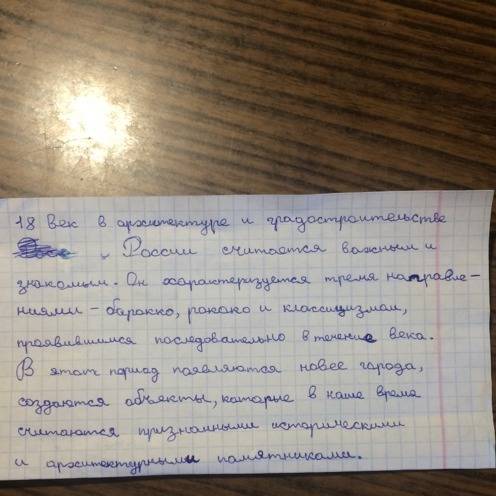 18 век в архитектуре и градостроительстве
России считается важным и
знакомым. Он характеризуется тремя направле-
ниями - барокко, рококо и классицизмом,
проявившимся последовательно в течение века.
В этот период появляются новее города,
создаются объекты, которые в наше время
считаются признанными историческими
и архитектурными памятниками.